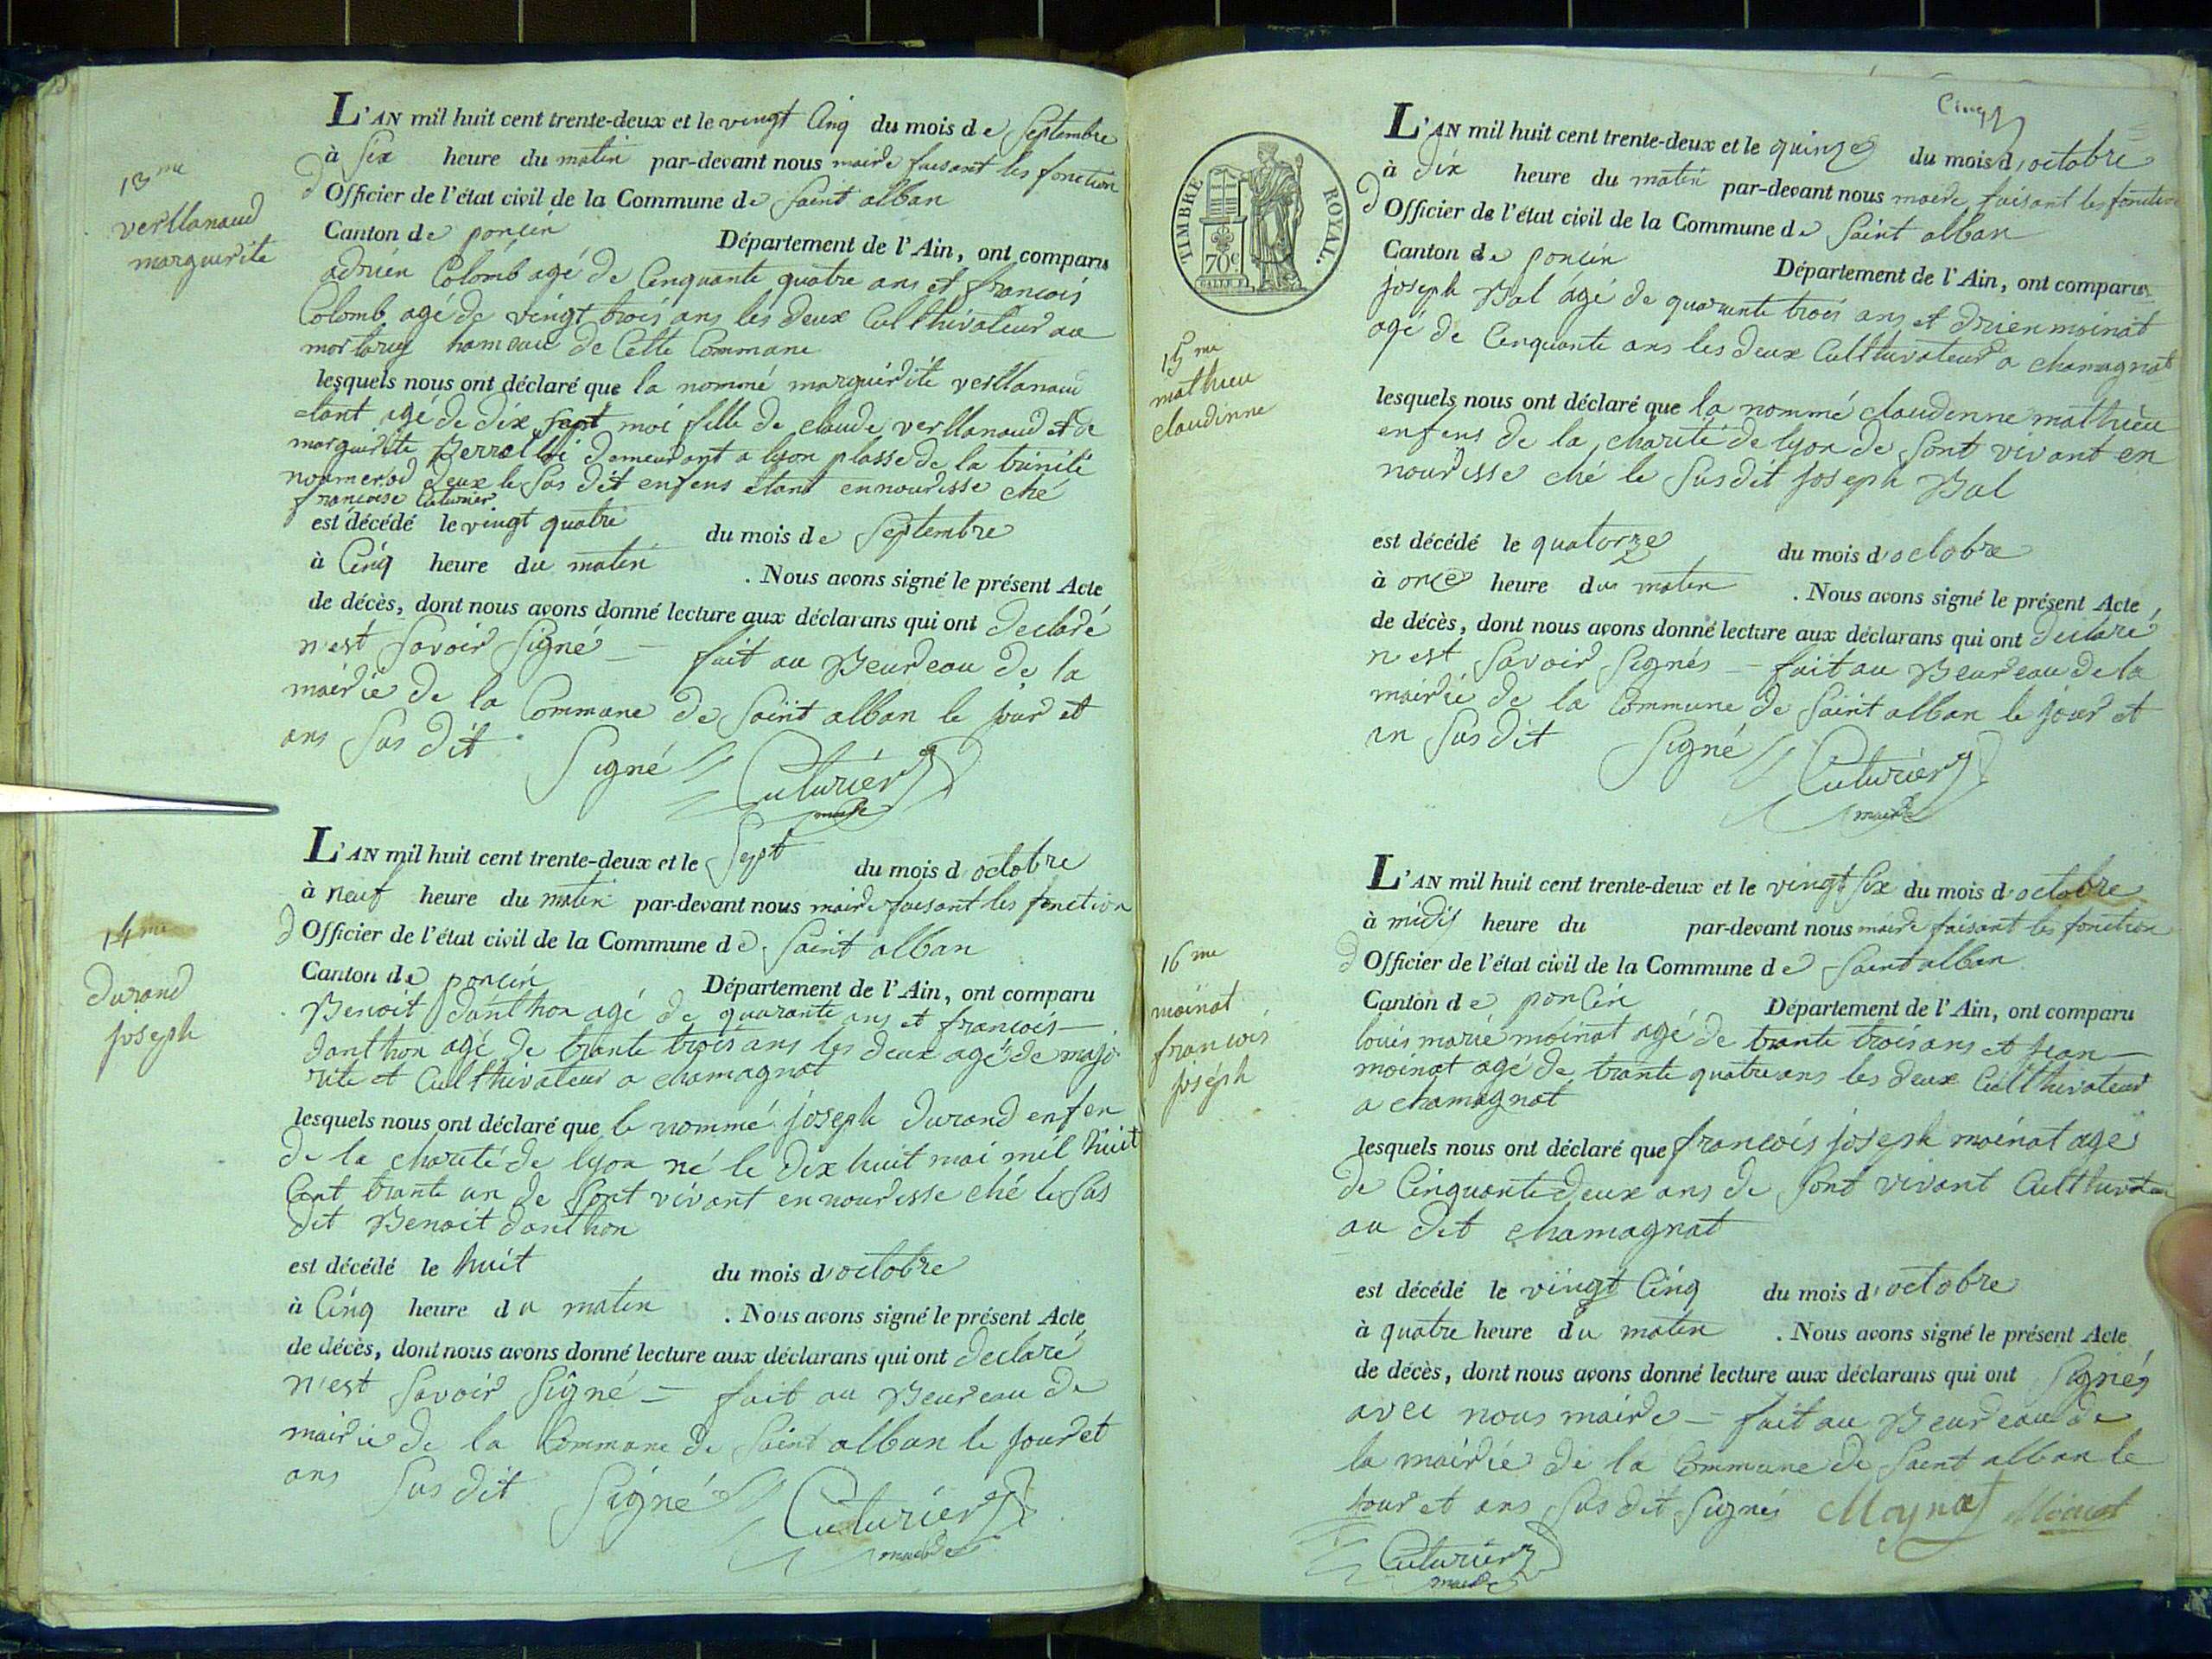 13me
verllanaud
marguerite
L'AN mil huit cent trente-deux et le vingt Cinq du mois de Septembre
à Six heure du matin par-devant nous maire faisant les fonction
d Officier de l'état civil de la Commune de Saint alban
Canton de poncin Département de l'Ain, ont comparu
adrien Colomb agé de Cinquante quatre ans et francois
Colomb agé de vingt trois ans les deux Culthivateur au
mortarey hameau de Cette Commune
lesquels nous ont déclaré que la nommé marguerite verllanaud
etant agé de dix sept moi fille de claude verllanaud et de
marguerite demeurant a lyon plasse de la trinité
noumerod deux le Sus dit enfens étant en nourisse ché
francoise Cuturier
est décédé le vingt quatre du mois de Septembre
à Cinq heure du matin . Nous avons signé le présent Acte
de décès, dont nous avons donné lecture aux déclarans qui ont declaré
n'est Savoir Signé — fait au Beureau de la
mairie de la Commune de Saint alban le jour et
ans Sus dit Signé Cuturier
maire
14me
durand
joseph
L'AN mil huit cent trente-deux et le Sept du mois d octobre
à neuf heure du matin par-devant nous maire faisant les fonction
d Officier de l'état civil de la Commune de Saint alban
Canton de poncin Département de l'Ain, ont comparu
Benoit danthon agé de quarante ans et francois
danthon agé de trante trois ans les deux agé de majo
rite et Culthivateur a chamagnat
lesquels nous ont déclaré que le nommé joseph durand enfen
de la charité de lyon né le dix huit mai mil huit
Cent trante un de Sont vivant en nourisse ché le Sus
dit Benoit danthon
est décédé le huit du mois d'octobre
à Cinq heure du matin . Nous avons signé le présent Acte
de décès, dont nous avons donné lecture aux déclarans qui ont declaré
n'est Savoir Signé — fait au Beureau de
mairie de la Commune de Saint alban le jour et
ans Sus dit Signé Cuturier
maire
Cinq
TIMBRE ROYAL.
70c
15me
mathieu
claudinne
L'AN mil huit cent trente-deux et le quinze du mois d'octobre
à dix heure du matin par-devant nous maire faisant les fonction
d Officier de l'état civil de la Commune de Saint alban
Canton de poncin Département de l'Ain, ont comparu
joseph Bal agé de quarante trois ans et drien moinat
agé de Cinquante ans les deux Culthivateur a chamagnat
lesquels nous ont déclaré que la nommé claudenne mathieu
enfens de la charité de lyon de Sont vivant en
nourisse ché le Susdit joseph Bal
est décédé le quatorze du mois d'octobre
à once heure du matin . Nous avons signé le présent Acte
de décès, dont nous avons donné lecture aux déclarans qui ont declaré
n'est Savoir Signés — fait au Beureau de la
mairie de la Commune de Saint alban le jour et
an Sus dit Signé Cuturier
maire
16me
moinat
francois
joséph
L'AN mil huit cent trente-deux et le vingt Six du mois d'octobre
à midy heure du par-devant nous maire faisant les fonction
d Officier de l'état civil de la Commune de Saint alban
Canton de poncin Département de l'Ain, ont comparu
louis marie moinat agé de trante trois ans et jean
moinat agé de trante quatre ans les deux Cultthivateur
a chamagnat
lesquels nous ont déclaré que francois joseph moinat agé
de Cinquante deux ans de Sont vivant Culthivateur
au dit chamagnat
est décédé le vingt Cinq du mois d'octobre
à quatre heure du matin . Nous avons signé le présent Acte
de décès, dont nous avons donné lecture aux déclarans qui ont Signés
avec nous maire — fait au Beureau de
la mairie de la Commune de Saint alban le
jour et ans Sus dit Signés Moynat
Cuturier
maire